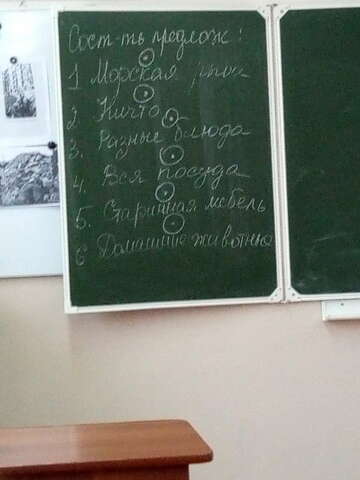 Сост-ть предлож:
1 Морская рыба
2. Ничто
3. Разные блюда
4. Вся посуда
5. Старинная мебель
6 Домашние животные